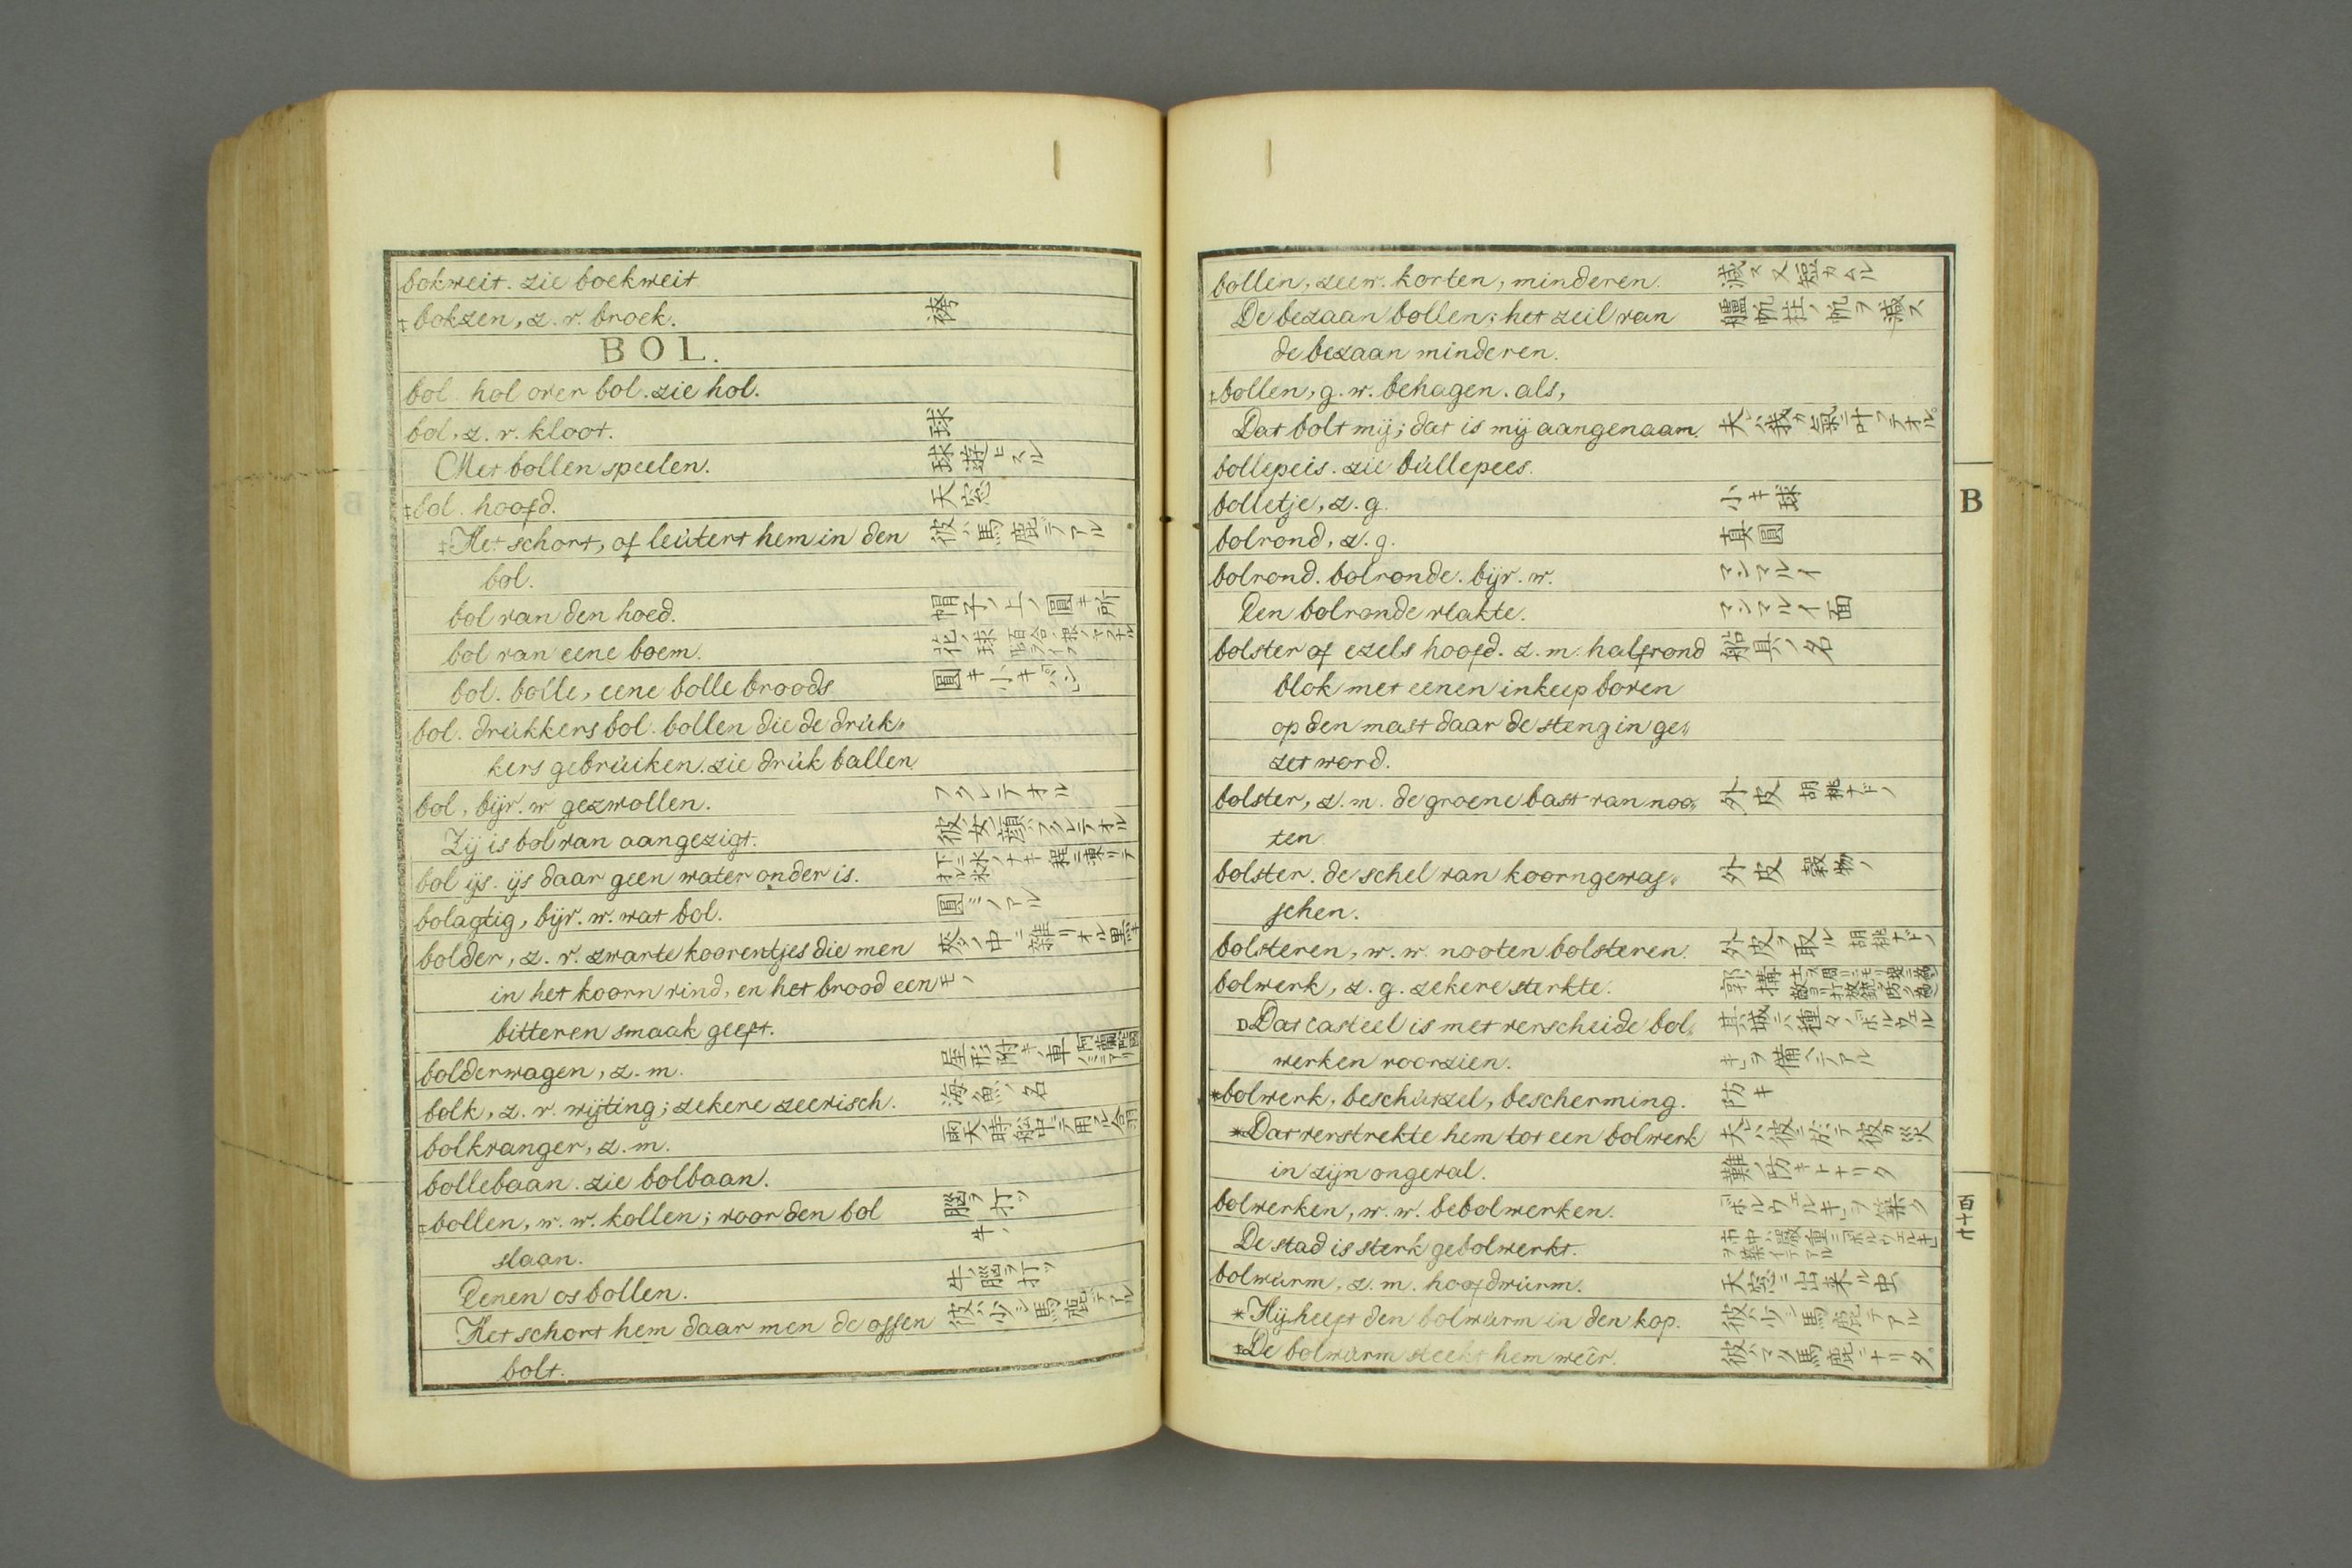 bokweit. zie boekweit
‡bokzen, z. v. broek. 袴
BOL.
bol. hol over bol. zie hol.
bol, z. v. kloot. 球
Met bollen speelen. 球遊ヒスル
‡bol. hoofd. 天窓
‡Het schort, of leútert hem in den 彼ハ馬鹿デアル
bol.
bol van den hoed. 帽子ノ上ノ圓キ所
bol van eene boem. 花ノ球
bol. bolle, eene bolle broods 圓キ小キパン
bol. drúkkers bol. bollen die de drúk„
kers gebrúiken. zie drúk ballen.
bol, bijv. w gezwollen. フクレテオル
Zij is bol van aangezigt. 彼女ノ顔ハフクレテオル
bol ijs. ijs daar geen water onder is.
bolagtig, bijv. w. wat bol. 圓ミノアル
bolder, z. v. zwarte koorentjes die men 麥ノ中ニ雑リオル黒キ
in het koorn vind, en het brood een モノ
bitteren smaak geeft.
bolderwagen, z. m. 屋形附キノ車
bolk, z. v. wijting; zekere zeevisch. 海魚ノ名
bolkvanger, z. m. 雨天ノ時船中デ用フル合羽
bollebaan. zie bolbaan.
‡bollen, w. w. kollen; voor den bol 脳ヲ打ツ
slaan. 牛ノ
Eenen os bollen. 牛ノ脳ヲ打ツ
Het schort hem daar men de ossen 彼ハ少シ馬鹿デアル
bolt.
bollen, zeew. korten, minderen. 減ス又短カムル
De bezaan bollen; het zeil van 艫帆柱ノ帆ヲ減ス
de bezaan minderen.
‡bollen, g. w. behagen. als,
Dat bolt mij; dat is mij aangenaam. 夫ハ我ガ氣ニ叶フテオル。
bollepeis. zie búllepees.
bolletje, z. g. 小キ球
bolrond, z. g. 真圓
bolrond. bolronde. bijv. w. マンマルイ
Een bolronde vlakte. マンマルイ面
bolster of ezels hoofd. z. m. halfrond 船具ノ名
blok met eenen inkeep boven
op den mast daar de steng in ge„
zet word.
bolster, z. m. de groene bast van noo„ 外皮 胡桃ナドノ
ten
bolster. de schel van koorngewas„ 外皮 穀物ノ
schen.
bolsteren, w. w. nooten bolsteren. 外皮ヲ取ル 胡桃ナドノ
bolwerk, z. g. zekere sterkte.
DDat casteel is met verscheide bol„ 其城ニハ種々ノボルウェル
werken voorzien. キヲ備ヘテアル
*bolwerk, beschútzel, bescherming. 防キ
*Dat verstrekte hem tot een bolwerk 夫ハ彼ニ於テ彼ガ災
in zijn ongeval. 難ノ防キトナリタ
bolwerken, w. w. bebolwerken. ボルウェルキヲ築ク
De stad is sterk gebolwerkt. 市中ハ嚴重ニボルウェルキヲ築イテアル
bolwúrm, z. m. hoofdwúrm. 天窓ニ出来ル虫
*Hij heeft den bolwúrm in den kop. 彼ハ少シ馬鹿デアル
‡De bolwúrm steekt hem weêr. 彼ハマタ馬鹿ニナリタ。
B
百十七